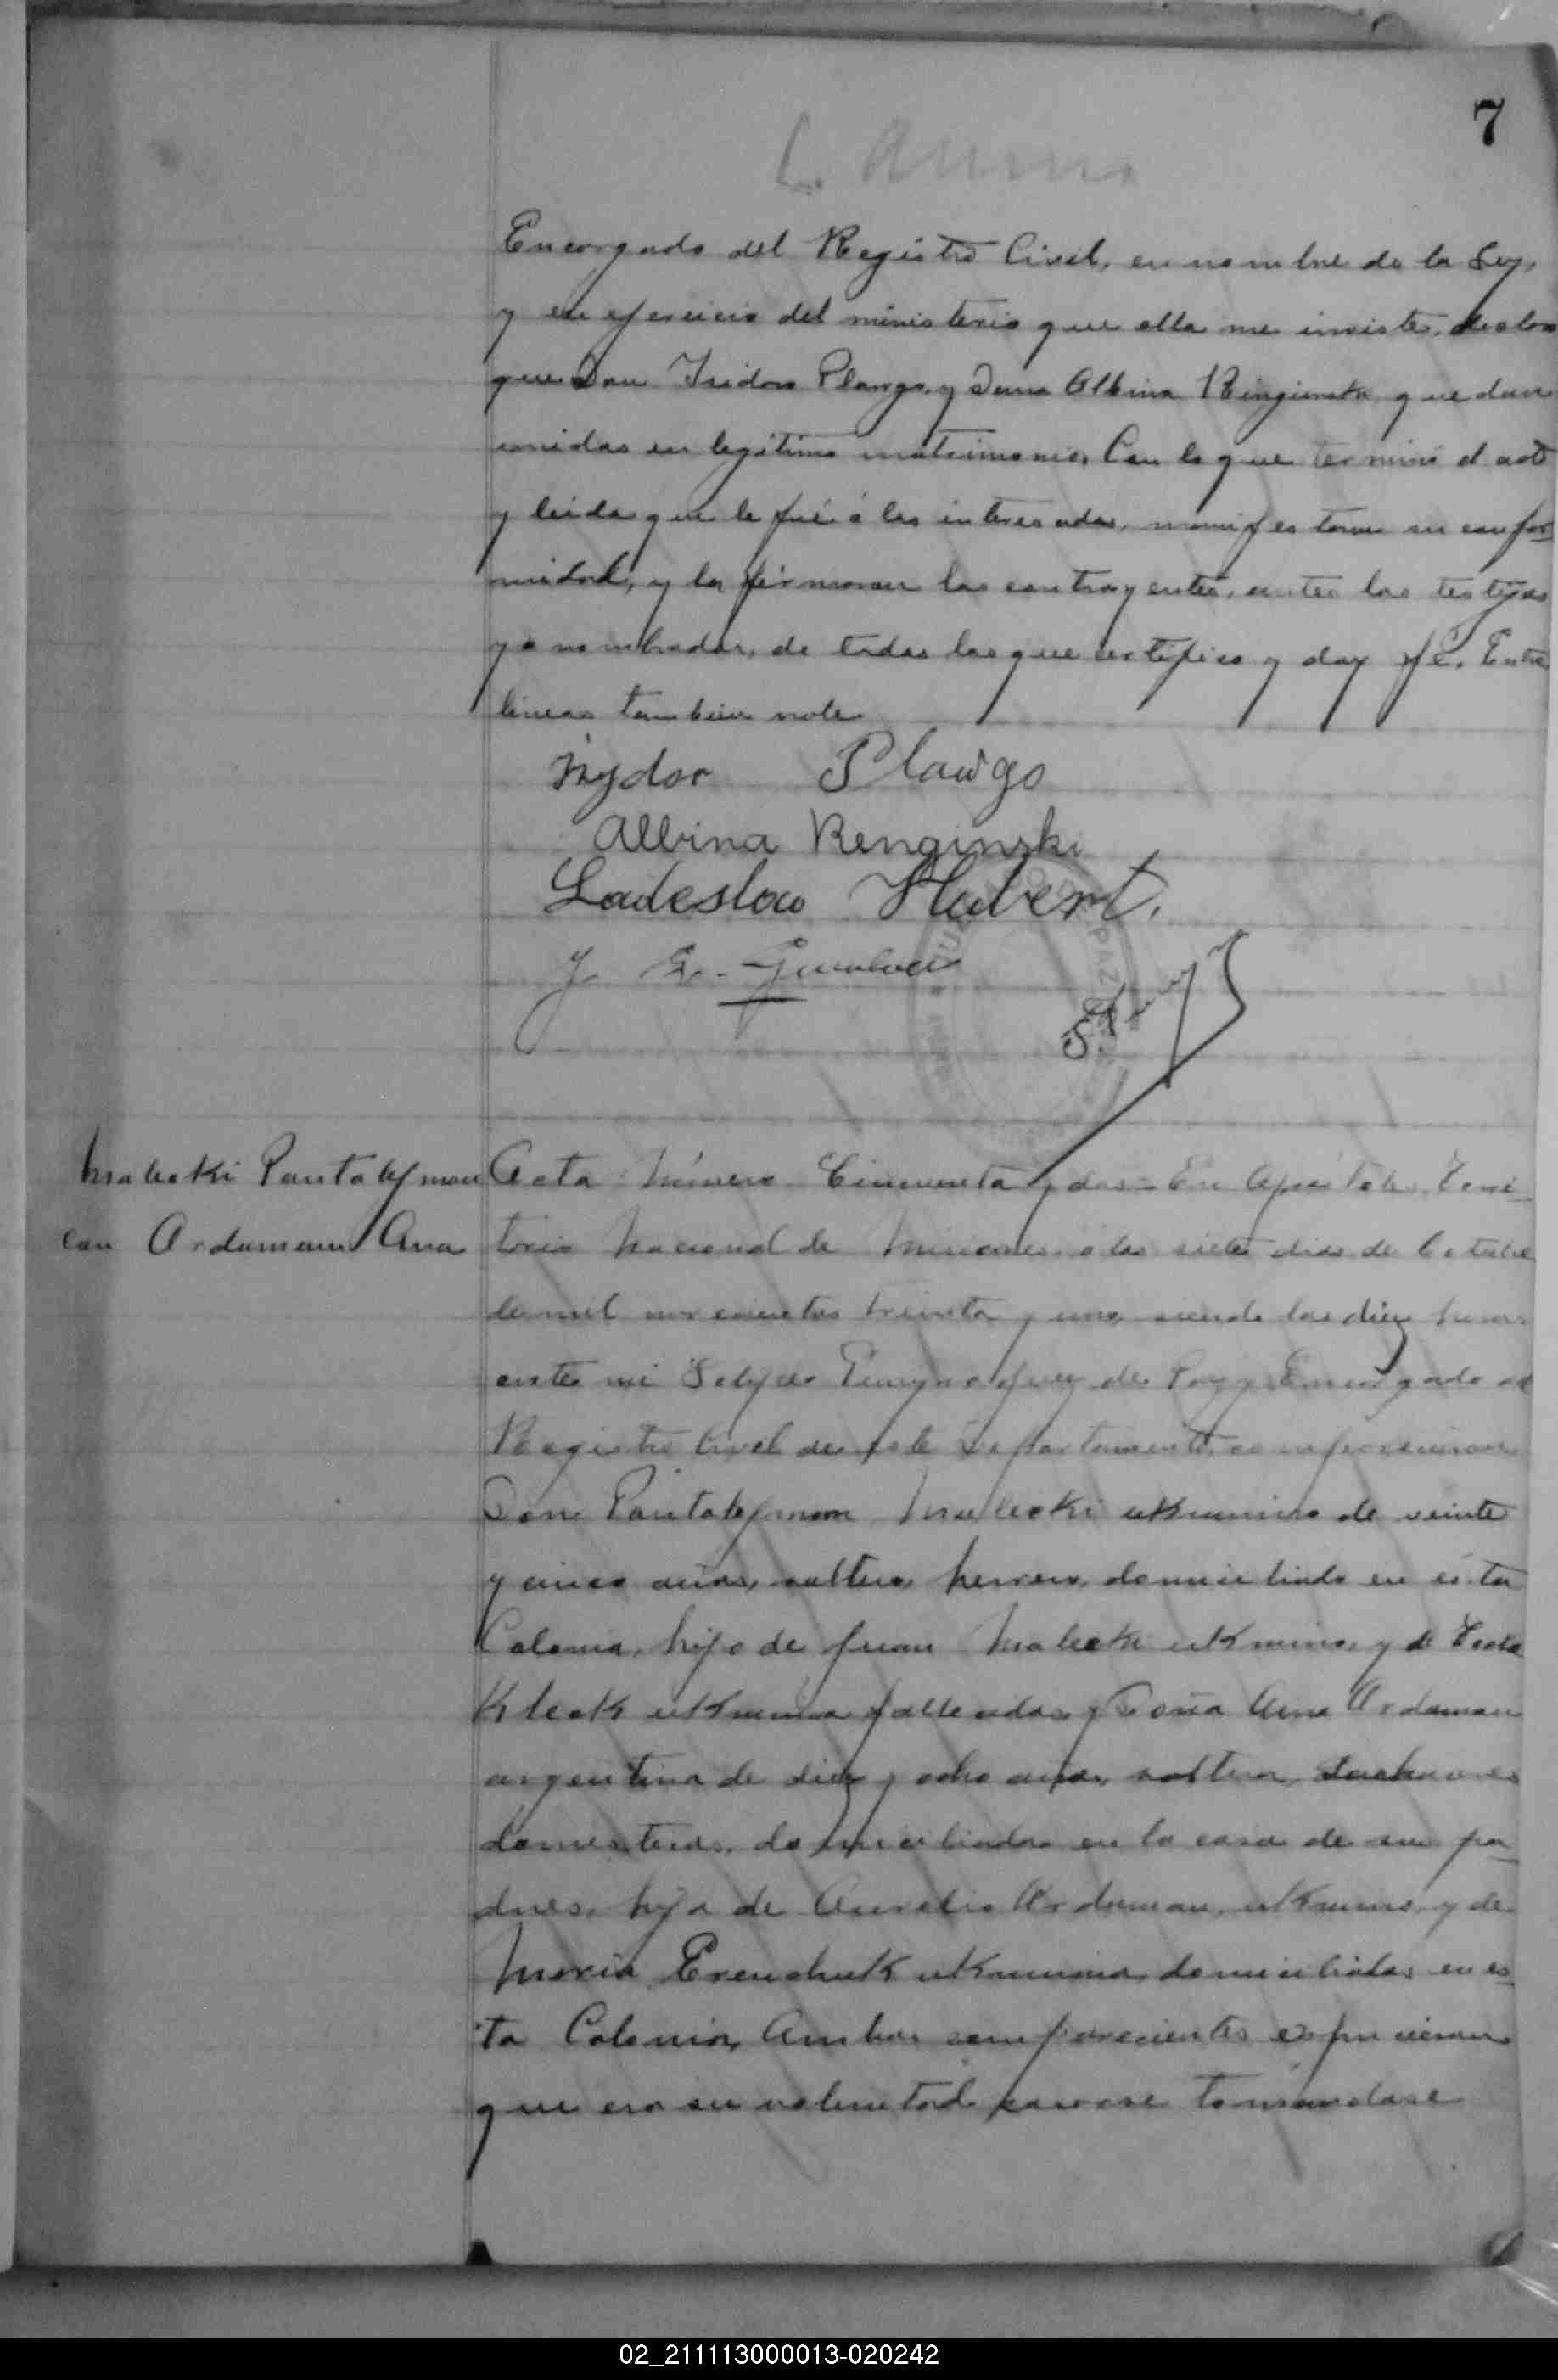 7
Encargado del Registro Civil, en nombre de la Ley,
y en ejercicio del ministerio que ella me inviste, declaro
que Don Isidoro Plawgo y Doña Albina Renginski quedan
unidos en legítimo matrimonio. Con lo que terminó el acto
y leida que le fué á los interesados, manifestaron su confor-
midad, y la firmaron los contrayentes, antes los testigos
ya nombrados, de todos los que certifico y doy fé. Entre
lineas tambien vale
Izydor Plawgo
Albina Renginski
Ladeslao Hubert.
Malecki Pantalejmon
con Ardaman Ana
Acta Número Cincuenta y dos = En Apóstoles, Terri-
torio Nacional de Misiones a los siete dias de Octubre
de mil novecientos treinta y uno, siendo las diez horas
ante mi Juez de Paz y Encargado del
Registro Civil de este Departamento, comparecieron
Don Pantalejmon Malecki ukranino de veinte
y cinco años, soltero, herrero, domiciliado en ésta
Colonia, hijo de Juan Malecki ukranino, y de Tecla
Kleck ukranina fallecidos y Doña Ana Ardaman
argentina de diez y ocho años, soltera,
domesticas, domiciliada en la casa de sus pa-
dres, hija de Aurelio Ardaman, ukranino, y de
Maria Erenchuk ukranina, domiciliados en es-
ta Colonia, Ambos comparecientes expusieron
que era su voluntad casarse tomandose
02_211113000013-020242